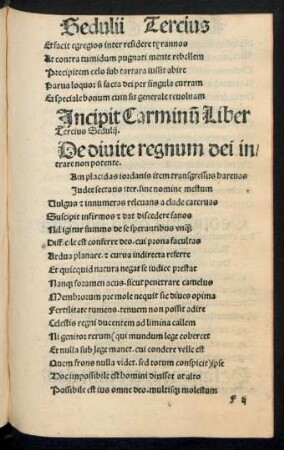 Sedulii Tercius
Et facit egregios inter residere tyrannos
At contra tumidum pugnati mente rebellem
Precipitem celo sub tartara iussit abire
Parua loquor si facta dei per singula curram
Et speciale bonum cum sit generale reuoluam
Incipit Carminū Liber
Tercius Sedulij.
De diuite regnum dei in/
trare non potente.
Am placidas iordanis item transgressus harenas
Judee secrans iter. sine nomine mestum
Uulgus et innumeras releuans a clade cateruas
Suscipit infirmos et dat discedere sanos
Ná igitur summo de se sperantibus vnqȝ
Difficile est conferre deo. cui prona facultas
Ardua planare. et curua indirecta referre
Et quicquid natura negat se iudice prestat
Nanqȝ foramen acus. sicut penetrare camelus
Membrorum pre mole nequit sic diues opima
Fertilitate tumens. tenuem non possit adire
Celestis regni ducentem ad limina callem
Ni genitor rerum (qui mundum lege cohercet
Et nulla sub lege manet. cui condere velle est
Quem frons nulla videt. sed totum conspicit) ipse
Hoc impossibile est homini dixisset at alto
Possibile est ius omne deo. multisqȝ molestum
F ij